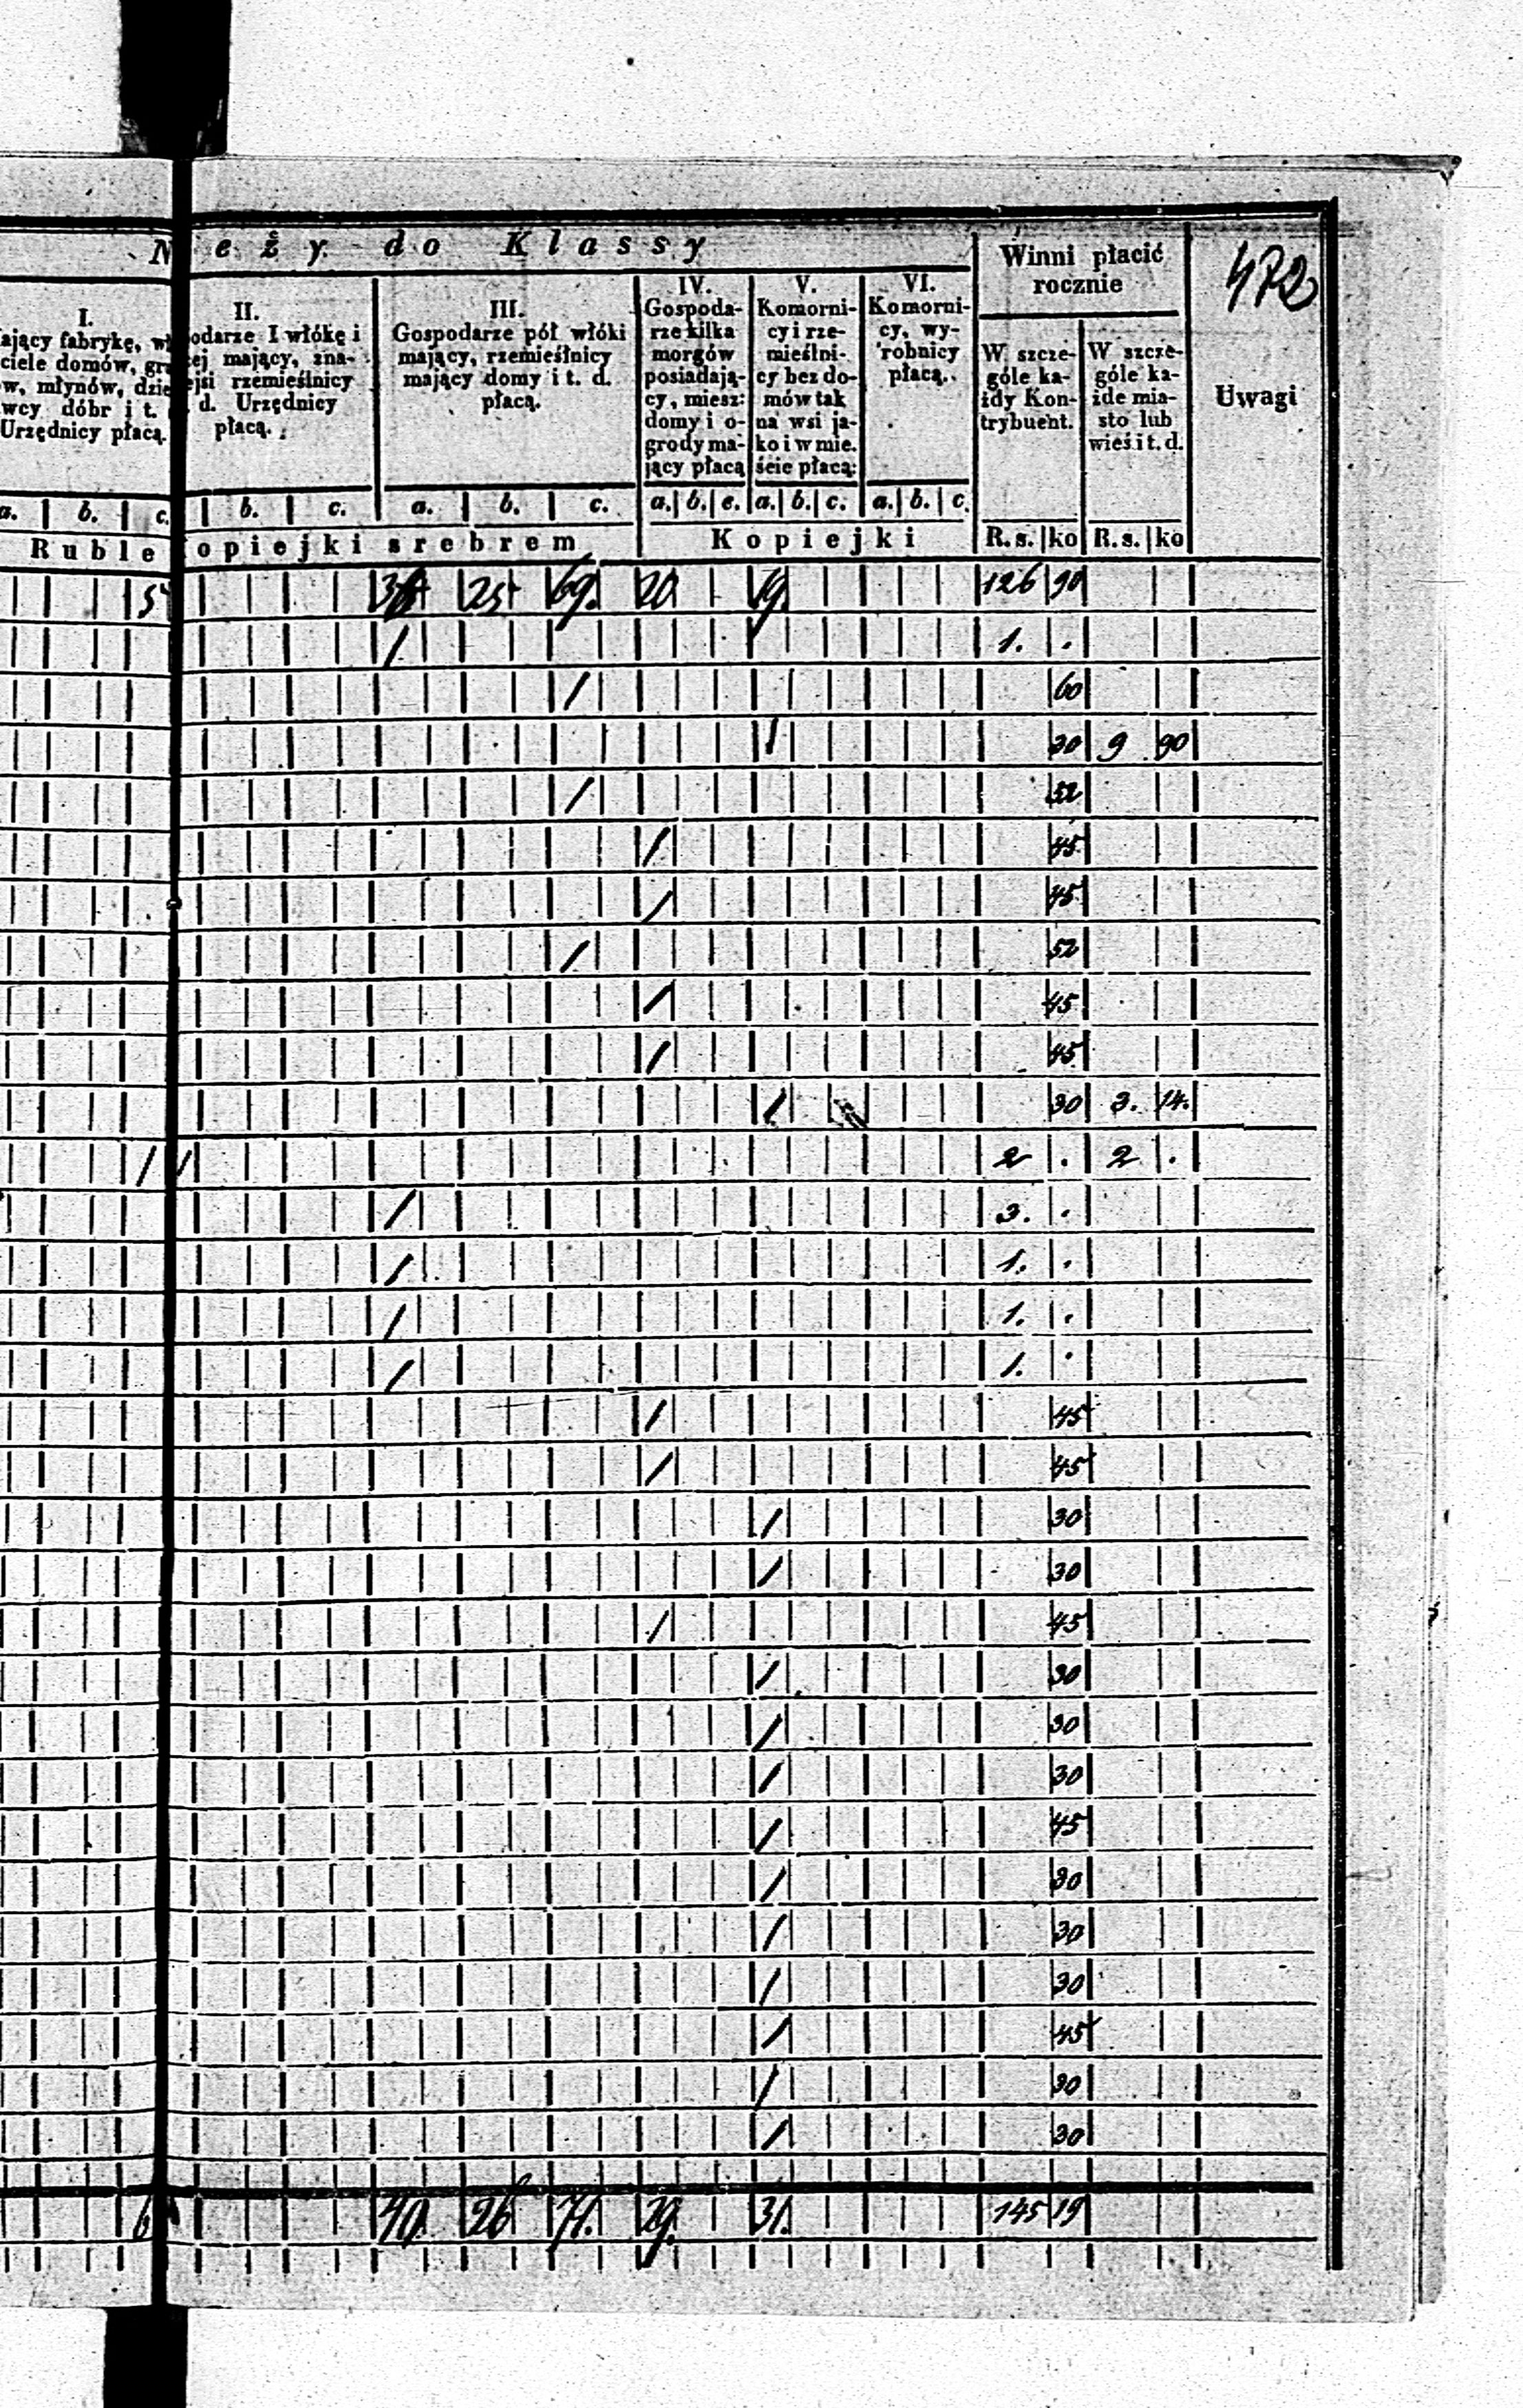 e ż y do Klassy
Winni płacić rocznie
472
I.
ający fabrykę,
ciele domów,
w, młynów,
wcy dóbr i t.
Urzędnicy płacą.
II.
odarze I włókę i
ej mający, zna-
jsi rzemieślnicy
d. Urzędnicy
płacą.
III.
Gospodarze pół włóki
mający, rzemieślnicy
mający domy i t. d.
płacą.
IV.
Gospoda-
rze kilka
morgów
posiadają-
cy, miesz:
domy i o-
grody ma-
jący płacą
V.
Komorni-
cy i rze-
mieślni-
cy bez do-
mów tak
na wsi ja-
ko i w mie.
ście płacą:
VI.
Komorni-
cy, wy-
robnicy
płacą.
W szcze-
góle ka-
żdy Kon-
trybuent.
W szcze-
góle ka-
żde mia-
sto lub
wieś i t. d.
Uwagi
a. b. c. b. c. a. b. c. a. b. c. a. b. c. a. b. c.
Ruble opiejki srebrem Kopiejki R. s. ko R. s. ko
5 25 69. 20 19. 126 90
/ 1. .
/ 60
/ 30 9 90
/ 52
/ 45
/ 45
/ 52
/ 45
/ 45
/ 30 3. 14.
/ / 2 . 2 .
/ 3. .
/ 1. .
/ 1. .
/ 1. .
/ 45
/ 45
/ 30
/ 30
/ 45
/ 30
/ 30
/ 30
/ 45
/ 30
/ 30
/ 30
/ 45
/ 30
/ 30
6 40. 26 71. 29. 31. 145 19